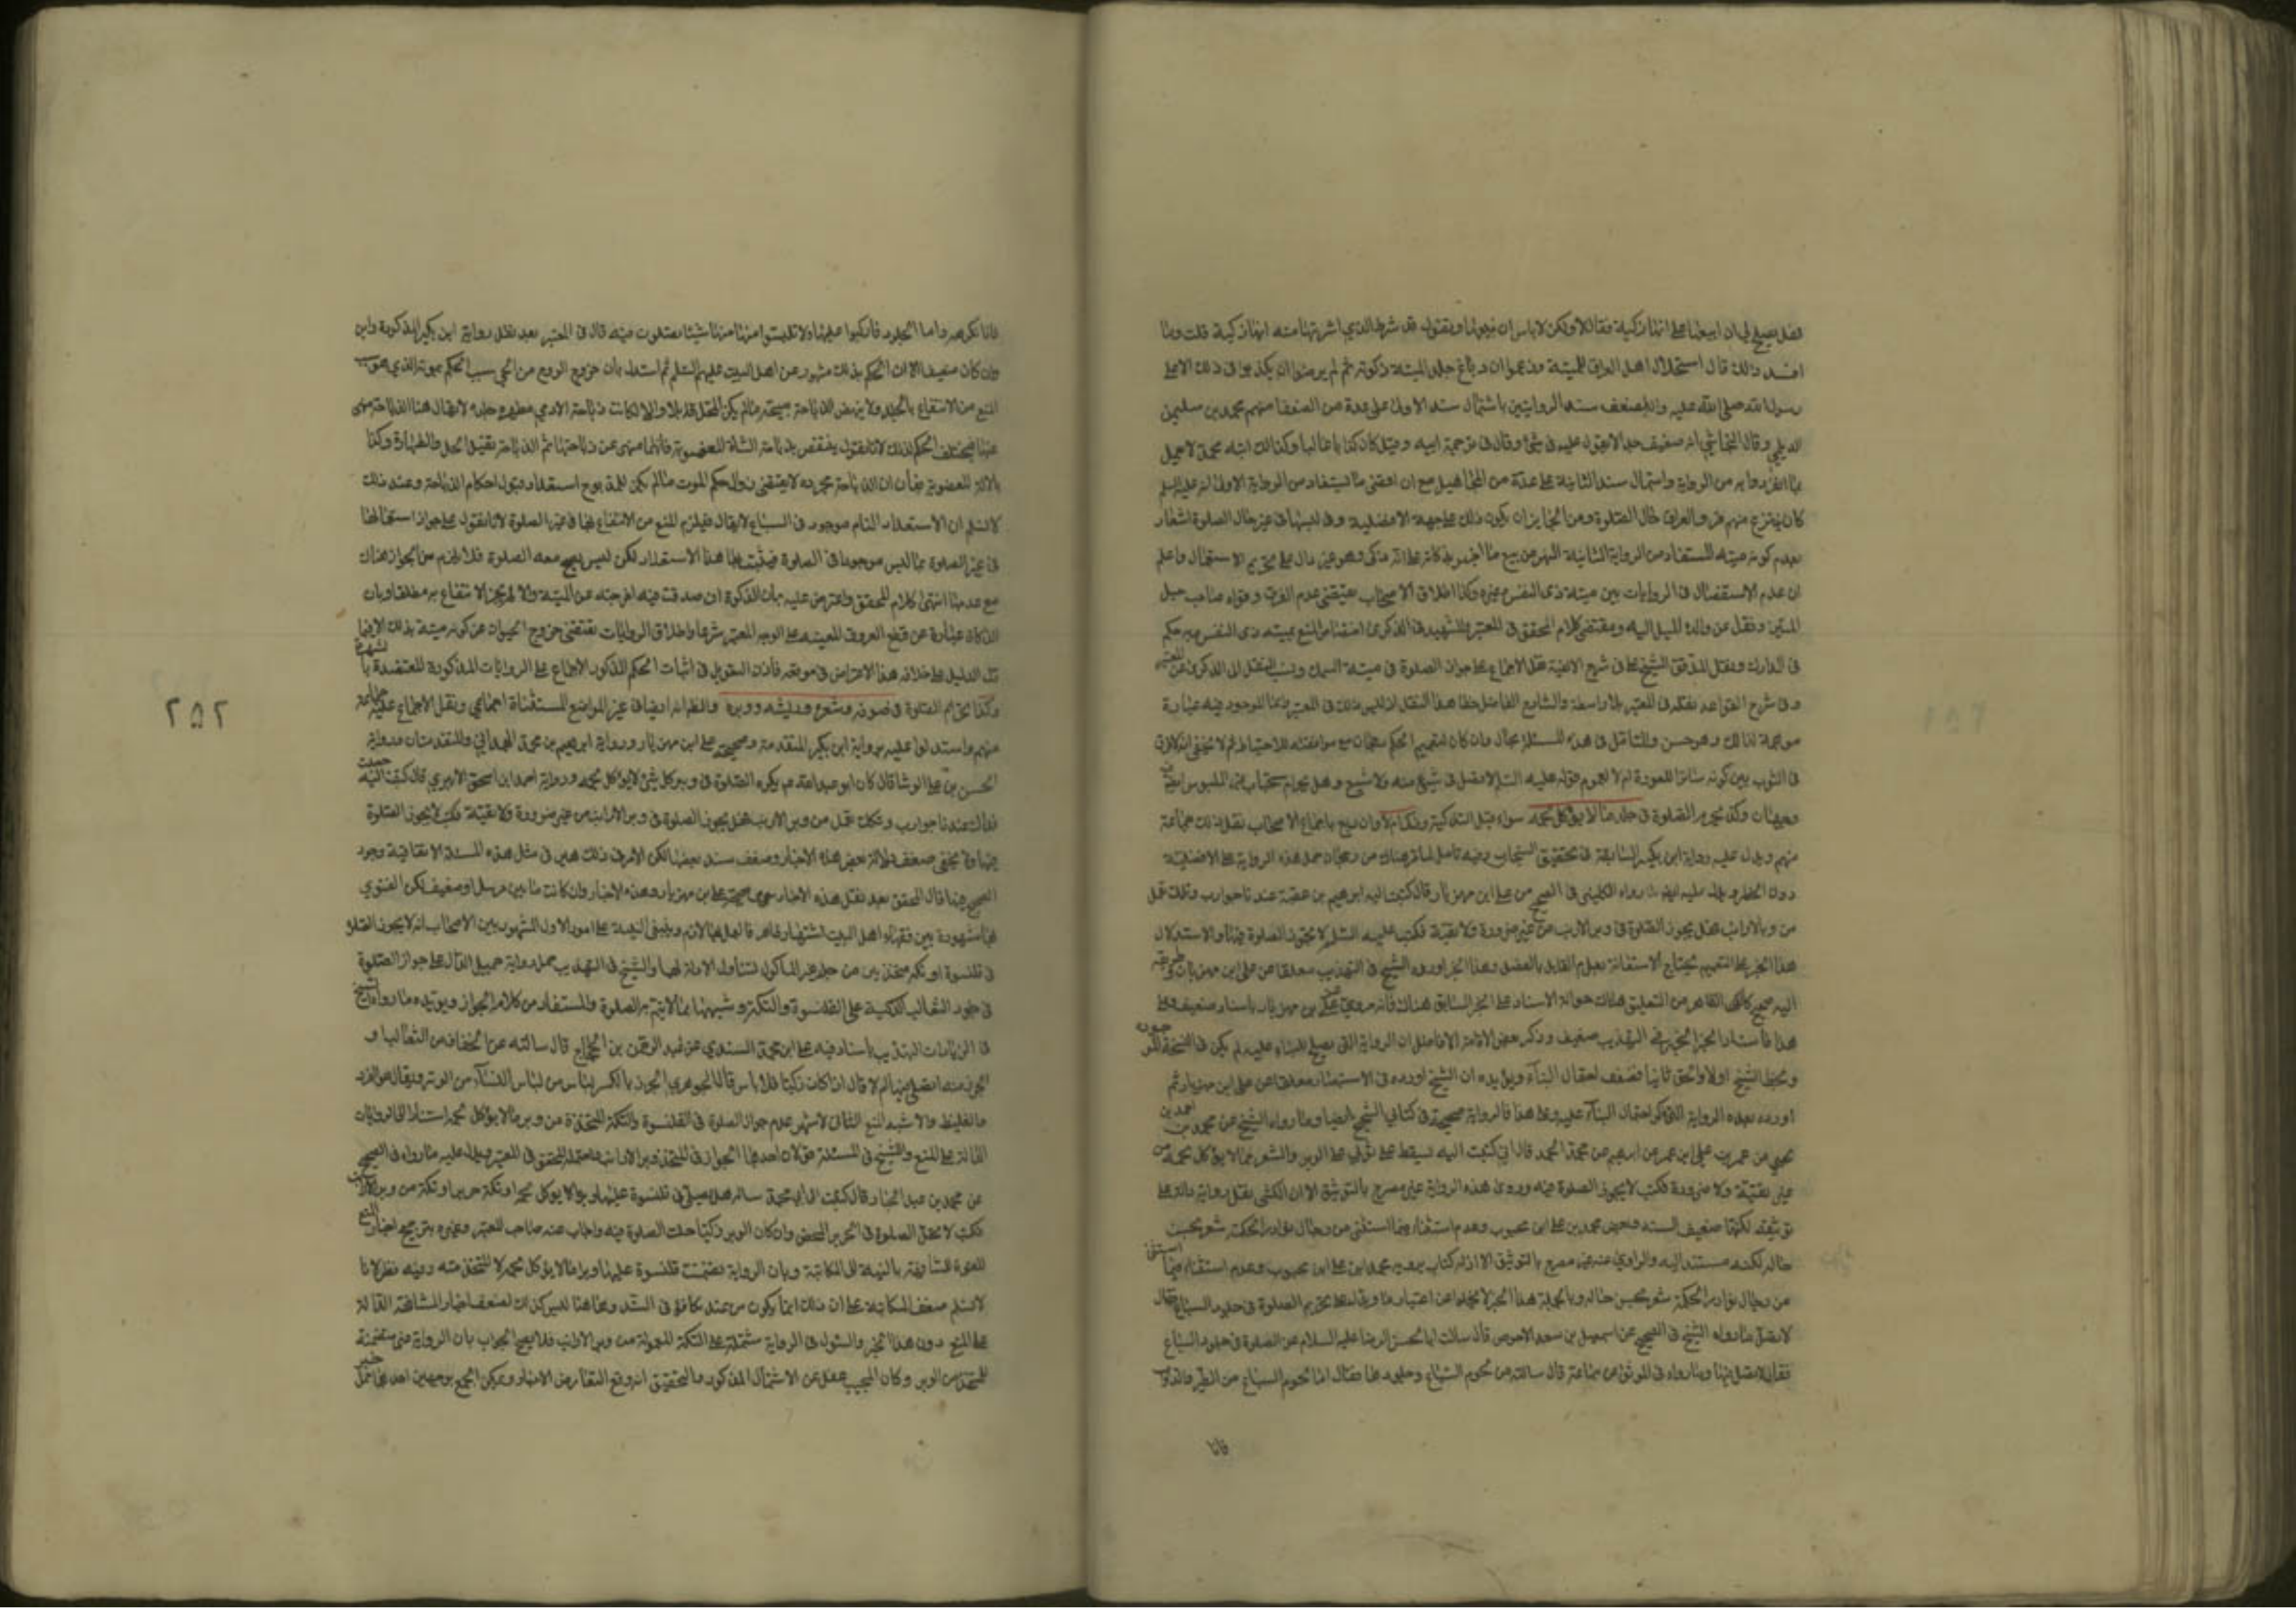 فقال يصلح لي ان ابيعها على انها ذكية فقال لا ولكن لا باس ان تبيعها وتقول قد شرط الذي اشتريتها منه انها ذكية قلت وما
افسد ذلك قال استحلال اهل العراق للميتة وزعموا ان دباغ جلد الميتة ذكوته ثم لم يرضوا ان يكذبوا في ذلك الا على
رسول الله صلى الله عليه واله بضعف سند الروايتين باشتمال سند الاولى على عدة من الضعفا منهم محمد بن سليمن
الديلمي وقال النجاشي انه ضعيف جدا لا يعول عليه في شئ وقال في ترجمة ابيه وقيل كان كذابا غاليا وكذلك ابنه محمد لا يعمل
بما انفردا به من الرواية واشتمال سند الثانية على عدة من المجاهيل مع ان اقصى ما يستفاد من الرواية الاولى انه عليه السلم
كان ينزع منهم فرو العراق حال الصلوة ومن الجايز ان يكون ذلك على جهة الافضلية وفي لبسها في غير حال الصلوة اشعار
بعدم كونه ميتة المستفاد من الرواية الثانية النهي عن بيع ما اخبر بذكاته على انه مذكى وهو غير دال على تحريم الاستعمال واعلم
ان عدم الاستفصال في الروايات بين ميتة ذي النفس وغيره وكذا اطلاق الاصحاب يقتضي عدم الفرق وقواه صاحب حبل
المتين ونقل عن والده الميل اليه ومقتضى كلام المحقق في المعتبر والشهيد في الذكرى اختصاص المنع بميتة ذي النفس وبه حكم
في المدارك ونقل المدقق الشيخ علي في شرح الالفية نقل الاجماع على جواز الصلوة في ميتة السمك ونسب النقل الى الذكرى عن المعتبر
وفي شرح القواعد نقله في المعتبر بلا واسطة والشارح الفاضل خطا هذا النقل اذ ليس ذلك في المعتبر وانما الموجود فيه عبارة
موهمة لذلك وهو حسن وللتامل في هذه المسئلة مجال وان كان لتعميم الحكم رجحان مع موافقته للاحتياط ثم لا يخفى انه لا فرق
في الثوب بين كونه ساترا للعورة ام لا لعموم قوله عليه السلام لا تصل في شئ منه ولا شسع وهل يحرام استصحاب غير الملبوس
وجهان وكذا تحرم الصلوة في جلد ما لا يؤكل لحمه سواء قبل التذكية ام لا وان دبغ باجماع الاصحاب نقل ذلك جماعة
منهم ويدل عليه رواية ابن بكير السابقة في تحقيق السنجاب وفيه تامل لما مر هناك من رجحان حمل هذه الرواية على الافضلية
دون الحظر ويدل عليه ايضا ما رواه الكليني في الصحيح عن علي ابن مهزيار قال كتب اليه ابرهيم بن عقبة عندنا جوارب وتكك تعمل
من وبر الارانب فهل يجوز الصلوة في وبر الارنب من غير ضرورة ولا تقية فكتب عليه السلم لا تجوز الصلوة فيها والاستدلال
هذا الخبر على التعميم يحتاج لاستعانة بعدم القايل بالفصل وهذا الخبر اورده الشيخ في التهذيب معلقا عن علي ابن مهزيار وطريقه
اليه صحيح
هذا فاسناد الخبر في التهذيب ضعيف وذكر بعض
وبخط الشيخ اولا والحق ثانيا فضعف احتمال البناء ويؤيده ان الشيخ اورده في الاستبصار معلقا عن علي ابن مهزيار ثم
اورد بعده الرواية التي ذكر احتمال البناء عليه وعلى هذا فالرواية صحيحة في كتابي الشيخ ايضا وما رواه الشيخ عن محمد بن احمد بن
يحيى عن عمر بن علي ابن عمر عن ابرهيم بن محمد الهمداني قال كتبت اليه يسقط على ثوبي الوبر والشعر مما لا يؤكل لحمه من
غير تقية ولا ضرورة فكتب لا يجوز الصلوة فيه وراوي هذه الرواية غير مصرح بالتوثيق الا ان الكشي نقل رواية دالة على
توثيقه لكنها ضعيف السند
حاله لكنه مستند اليه والراوي عنه غير مصرح بالتوثيق الا ان له كتاب يرويه محمد ابن علي ابن محبوب وعدم استثنائه فيما استثنى
من رجال نوادر الحكمة شعر بحسن حاله وبالجملة هذا الخبر لا يخلو عن اعتبار ما ويدل على تحريم الصلوة في جلود السباع
ما رواه الشيخ في الصحيح عن اسمعيل بن سعد الاحوص قال سالت ابا الحسن الرضا عليه السلام عن الصلوة في جلود السباع
فقال لا تصل فيها وما رواه في الموثق عن سماعة قال سالته عن لحوم السباع وجلودها فقال اما لحوم السباع من الطير والدواب
فانا
فانا نكرهه واما الجلود فاركبوا عليها ولا تلبسوا منها شيئا تصلون فيه قال في المعتبر بعد نقل رواية ابن بكير المذكورة وابن
وان كان ضعيفا الا ان الحكم بذلك مشهور عن اهل البيت عليهم السلم ثم استدل بأن خروج الروح من الحي سبب الحكم بموته الذي هو سبب
المنع من الانتفاع بالجلد ولا ينهض الذباحة مبيحة ما لم يكن المحل قابلا والا لكانت ذباحة الادمي مطهرة جلده لا يقال هنا الذباحة منهى
عنها فيختلف الحكم لذلك لانا نقول ينتقض بذباحة الشاة المغصوبة فانها منهى عن ذباحتها ثم الذباحة تفيد الحل والطهارة وكذا
بالالة المغصوبة فبان ان الذباحة بمجرده لا يقتضي زوال حكم الموت ما لم يكن للمذبوح استعداد قبول احكام الذباحة وعند ذلك
لا نسلم ان الاستعداد التام موجود في السباع لا يقال فيلزم المنع من الانتفاع بها في غير الصلوة لانا نقول على جواز استعمالها
في غير الصلوة بما ليس موجودا في الصلوة فيثبت لها هذا الاستعداد لكن ليس يصح معه الصلوة فلا يلزم من الجواز هناك
مع عدمها انتهى كلام المحقق واعترض عليه بأن الذكوة ان صدقت فيه اخرجته عن الميتة والا لم يجز الانتفاع به مطلقا وبان
الذكاة عبارة عن قطع العروق المعينة على الوجه المعتبر شرعا واطلاق الروايات يقتضي خروج الحيوان عن كونه ميتة بذلك الا فيما
دل الدليل على خلافه هذا الاعتراض في موقعه فاذن التعويل في اثبات الحكم المذكور الاجماع على الروايات المذكورة المعتضدة بالشهرة
وكذا تحرام الصلوة في صوفه وشعره وريشه ووبره والظاهر ايضا في غير المواضع المستثناة اجماعي ونقل الاجماع عليه جماعة
منهم واستدلوا عليه برواية ابن بكير المتقدمة وصحيحة علي ابن مهزيار ورواية ابرهيم بن محمد الهمداني المتقدمتان ورواية
الحسن بن علي الوشا قال كان ابو عبد الله ع يكره الصلوة في وبر كل شئ لا يؤكل لحمه ورواية احمد ابن اسحق الابهري قال كتبت اليه جعلت
فداك عندنا جوارب وتكك تعمل من وبر الارنب فهل يجوز الصلوة في وبر الارانب من غير ضرورة ولا تقية فكتب لا يجوز الصلوة
فيها ولا يخفى ضعف دلالة بعض هذه الاخبار وضعف سند بعضها لكن الامر في ذلك هين في مثل هذه المسئلة الاتفاقية وجود
الصحيح فيها قال المحقق بعد نقل هذه الاخبار سوى صحيحة علي بن مهزيار وهذه الاخبار وان كانت ما بين مرسل او ضعيف لكن الفتوى
بها مشهورة بين فقهاء اهل البيت اشتهارا ظاهرا فالعمل بها لازم وينبغي التنبيه على امور الاول المشهور بين الاصحاب انه لا يجوز الصلوة
في قلنسوة او تكة متخذين من جلد غير المأكول لتناول الادلة لها والشيخ في التهذيب حمل رواية جميل الدال على جواز الصلوة
في جلود الثعالب الذكية على القلنسوة والتكة وشبههما مما لا يتم به الصلوة والمستفاد من كلامه الجواز ويؤيده ما رواه الشيخ
في الزيادات التهذيب باسناد فيه علي ابن محمد السندي عن عبد الرحمن بن الحجاج قال سالته عن الخفاف من الثعالب او
الجرز منه ايصلى فيها ام لا قال اذا كانت ذكيا فلا باس قال الجوهري الجرز بالكسر لباس من لباس النساء من الوبر ويقال هو الفرو
الغليظ والاشبه المنع الثاني الاشهر عدم جواز الصلوة في القلنسوة والتكة المتخذة من وبر ما لا يؤكل لحمه استنادا الى الروايات
الدالة على المنع وللشيخ في المسئلة قولان احدهما الجواز في المتخذ وبر الارانب واحتمله المحقق في المعتبر ويدل عليه ما رواه في الصحيح
عن محمد بن عبد الجبار قال كتبت الى ابي محمد ساله هل يصلى في قلنسوة عليها وبر ما لا يؤكل لحمه او تكة حرير او تكة من وبر الارانب
فكتب لا تحل الصلوة في الحرير المحض وان كان الوبر ذكيا حلت الصلوة فيه واجاب عنه صاحب المعتبر وغيره بترجيح اخبار المنع
بالنسبة الى المكاتبة وبان الرواية تضمنت قلنسوة عليها وبر ما لا يؤكل لحمه لا المتخذ منه وفيه نظر لانا
لا نسلم ضعف المكاتبة على ان ذلك انما يكون مع عند تكافؤ في السند وهاهنا ليس كذلك لضعف اخبار المشافهة الدالة
على المنع دون هذا الخبر والسئول في الرواية مشتملة على التكة المعمولة من وبر الارانب فلا يصح الجواب بان الرواية غير متضمنة
للمتخذ من الوبر وكان المجيب غفل عن الاشتمال المذكور والتحقيق انه وقع التعارض بين الاخبار ويمكن الجمع بوجهين احدهما حمل خبر
٢٥٢